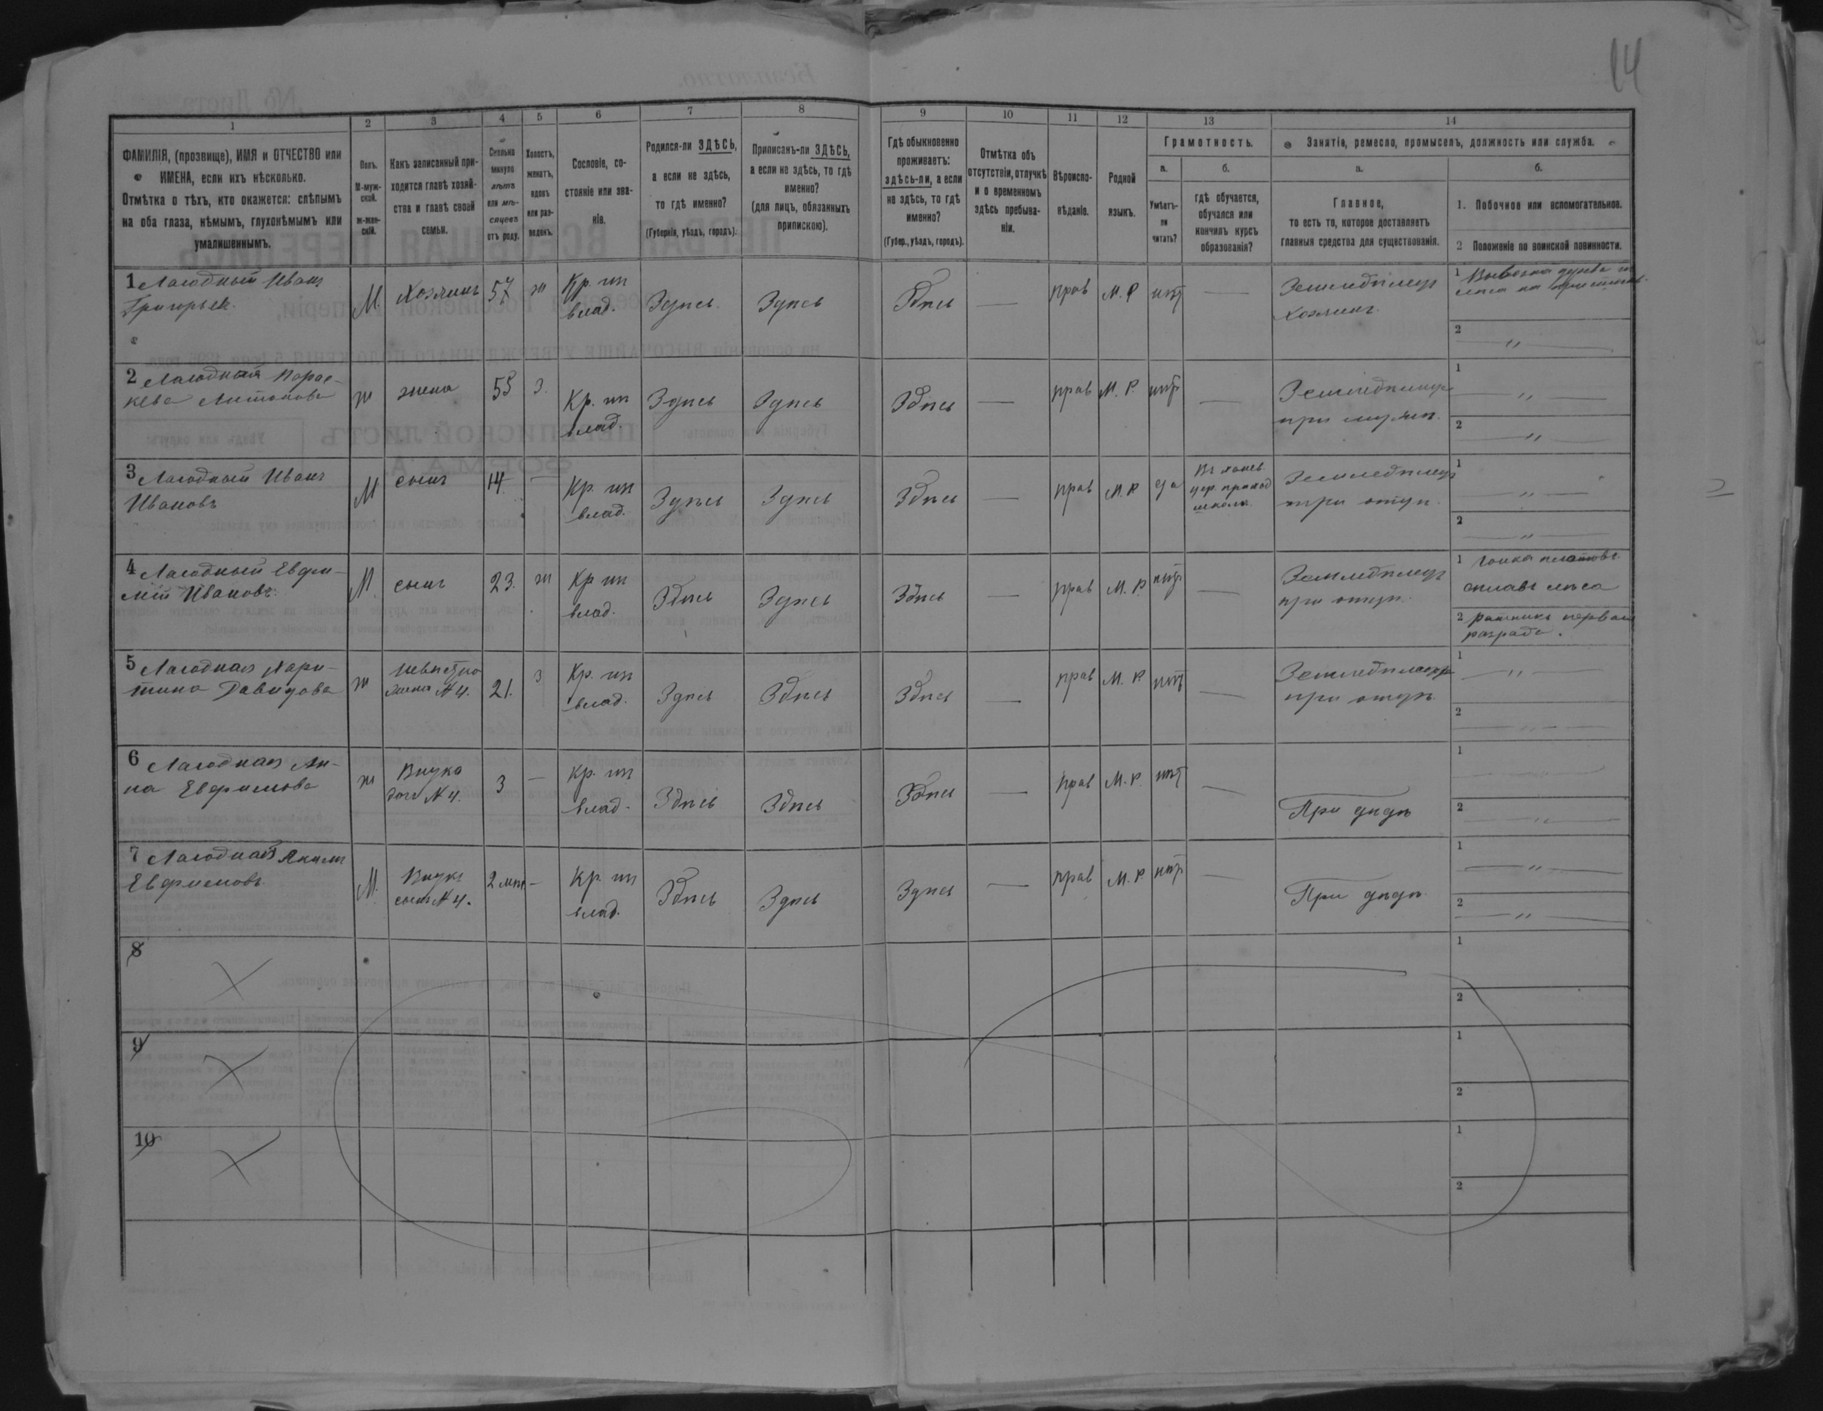 14
1 2 3 4 5 6 7 8 9 10 11 12 13 14
ФАМИЛІЯ, (прозвище), ИМЯ и ОТЧЕСТВО или
ИМЕНА, если ихъ нѣсколько.
Отмѣтка о тѣхъ, кто окажется: слѣпымъ
на оба глаза, нѣмымъ, глухонѣмымъ или
умалишеннымъ.
Полъ.
М-муж-
ской.
Ж-жен-
скій.
Какъ записанный при-
ходится главѣ хозяй-
ства и главѣ своей
семьи.
Сколько
минуло
лѣтъ
или мѣ-
сяцевъ
отъ роду.
Холостъ,
женатъ,
вдовъ
или раз-
веденъ.
Сословіе, со-
стояніе или зва-
ніе.
Родился-ли ЗДѢСЬ,
а если не здѣсь,
то гдѣ именно?
(Губернія, уѣздъ, городъ).
Приписанъ-ли ЗДѢСЬ,
а если не здѣсь, то гдѣ
именно?
(для лицъ, обязанныхъ
припискою).
Гдѣ обыкновенно
проживаетъ:
здѣсь-ли, а если
не здѣсь, то гдѣ
именно?
(Губер., уѣздъ, городъ).
Отмѣтка объ
отсутствіи, отлучкѣ
и о временномъ
здѣсь пребыва-
ніи.
Вѣроиспо-
вѣданіе.
Родной
языкъ.
Грамотность.
а.
Умѣетъ-
ли
читать?
б.
гдѣ обучается,
обучался или
кончилъ курсъ
образованія?
Занятіе, ремесло, промыселъ, должность или служба.
а.
Главное,
то есть то, которое доставляетъ
главныя средства для существованія.
б.
1. Побочное или вспомогательное.
2 Положеніе по воинской повинности.
1 Лагодный Иванъ
Григорьев.
М. Хозяинъ 57 ж Кр. из
влад. Здѣсь Здѣсь Здѣсь — прав М. Р нѣт — Земледѣлецъ
хозяинъ
1
2 — " —
2 Лагодная Парас-
кева Антонова
ж жена 55 з. Кр. из
влад. Здѣсь Здѣсь Здѣсь — прав М. Р нѣт —
при мужѣ
1 "
2 — " —
3 Лагодный Иванъ
Ивановъ
М сынъ 14 — Кр. из
влад. Здѣсь Здѣсь Здѣсь — прав М. Р да
школѣ
Земледѣлецъ
при отцѣ
1 — " —
2 — " —
4 Лагодный Евфи-
мій Ивановъ
М. сынъ 23. ж Кр из
влад. Здѣсь Здѣсь Здѣсь — прав М. Р нѣт — Земледѣлецъ
при отцѣ
1 гонка плотовъ
сплавъ лѣса
2 ратникъ перваго
разряда.
5 Лагодная Хари-
тина Давидова
ж невѣстка
жена № 4. 21. з Кр. из
влад. Здѣсь Здѣсь Здѣсь — прав М. Р нѣт —
при отцѣ
1 — " —
2 — " —
6 Лагодная Ан-
на Евфимова
ж Внука
дочь № 4. 3 — Кр. из
влад. Здѣсь Здѣсь Здѣсь — прав М. Р. нѣт — При дѣдѣ
1
2 — " —
7 Лагодный Акимъ
Евфимовъ
М. Внукъ
сынъ № 4. 2 мѣс — Кр. из
влад. Здѣсь Здѣсь Здѣсь — прав М. Р нѣт — При дѣдѣ
1 — " —
2 — " —
8
1
2
9
1
2
10
1
2